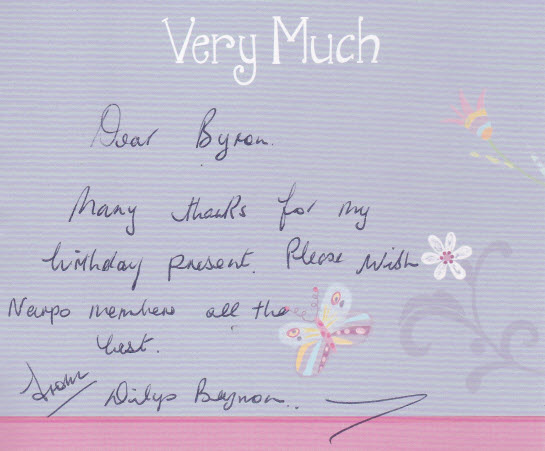 Very Much
Dear Byron.
Many thanks for my
birthday present. Please wish
Narpo members all the
best.
from
Dilys Beynon.